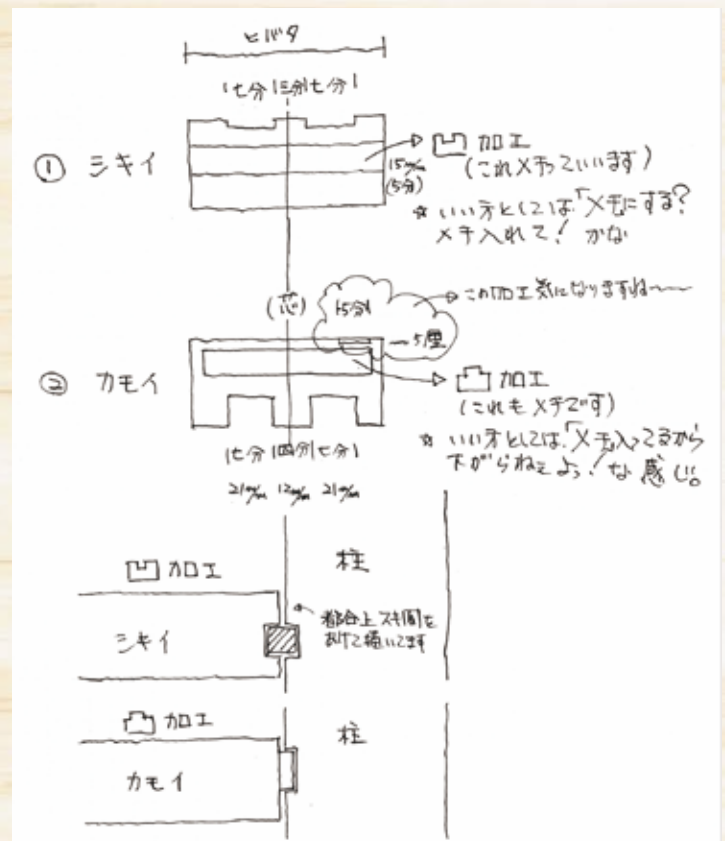 ヒバタ
七分 三分 七分
① シキイ
加工
15m/m
(5分)
(これメチっていいます)
☆ いい方としては「メチにする?
メチ入れて! かな
(芯)
1.5分
この加工気になりますね〜〜
5厘
② カモイ
加工
(これもメチです)
☆ いい方としては「メチ入ってるから
下がらねぇよっ! な感じ。
七分 四分 七分
21m/m 12m/m 21m/m
加工
柱
シキイ
都合上スキ間を
あけて描いてます
加工
柱
カモイ